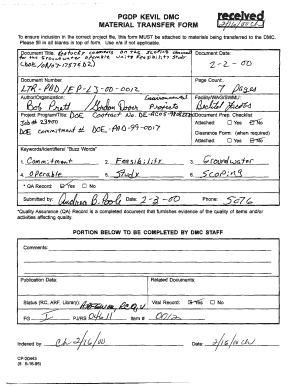 PGDP KEVIL DMC
MATERIAL TRANSFER FORM
received
To ensure inclusion in the correct project file, this form MUST be attached to materials being transferred to the DMC.
Please fill in all blanks in top of form. Use n/a if not applicable.
Document Title: Kentucky comments on the scoping document
for the Groundwater Operable Units Feasibility Study
(DOE/OR/07-1757&D2)
Document Date:
2-2-00
Document Number
LTR-PAD/EP-13-00-0012
Page Count:
7 Pages
Author/Organization:
Bob Pratt / Gordon Dover Environmental Projects
Facility/WAG/SWMU:
Bechtel Jacobs
Project Program/Title: DOE Contract No. DE-AC05-
Job # 23900
DOE commitment # DOE-PAD-99-0017
Document Prep. Checklist
Attached: Yes No
Clearance Form: (when required)
Attached: Yes No
Keywords/Identifiers/ "Buzz Words"
1. Commitment 2. Feasibility 3. Groundwater
4. operable 5. Study 6. scoping
* QA Record: Yes No
Submitted by: Andrea B. Poole Date: 2-3-00 Phone: 5076
*Quality Assurance (QA) Record is a completed document that furnishes evidence of the quality of items and/or
activities affecting quality.
PORTION BELOW TO BE COMPLETED BY DMC STAFF
Comments:
Publication Date:
Related Documents:
Status (RC, ARF, Library):
Vital Record: Yes No
FG I PJ/RS 04611 Item # 0012
Indexed by: Ch 2/16/00 Date: 2/16/00
CP-20443